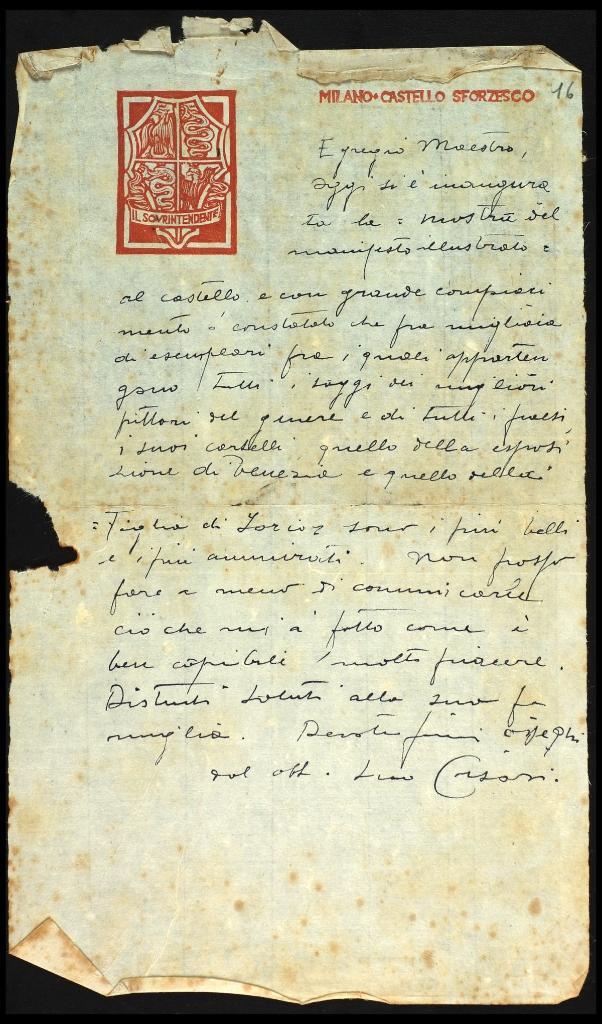 MILANO • CASTELLO SFORZESCO
16
IL SOVRINTENDENTE
Egregio Maestro,
oggi si è inaugura
ta la = mostra del
manifesto illustrato =
al castello e con grande compiaci
mento ò constatato che fra migliaia
di esemplari fra i quali apparten
gono tutti i saggi dei migliori
pittori del genere e di tutti i paesi,
i suoi cartelli, quello della esposi
zione di Venezia e quello della
= Figlia di Jorio = sono i più belli
e i più ammirati. Non posso
fare a meno di comunicarle
ciò che mi à fatto come è
ben capibile molto piacere.
Distinti saluti alla sua fa
miglia. Devotissimi ossequi
dal obb. suo